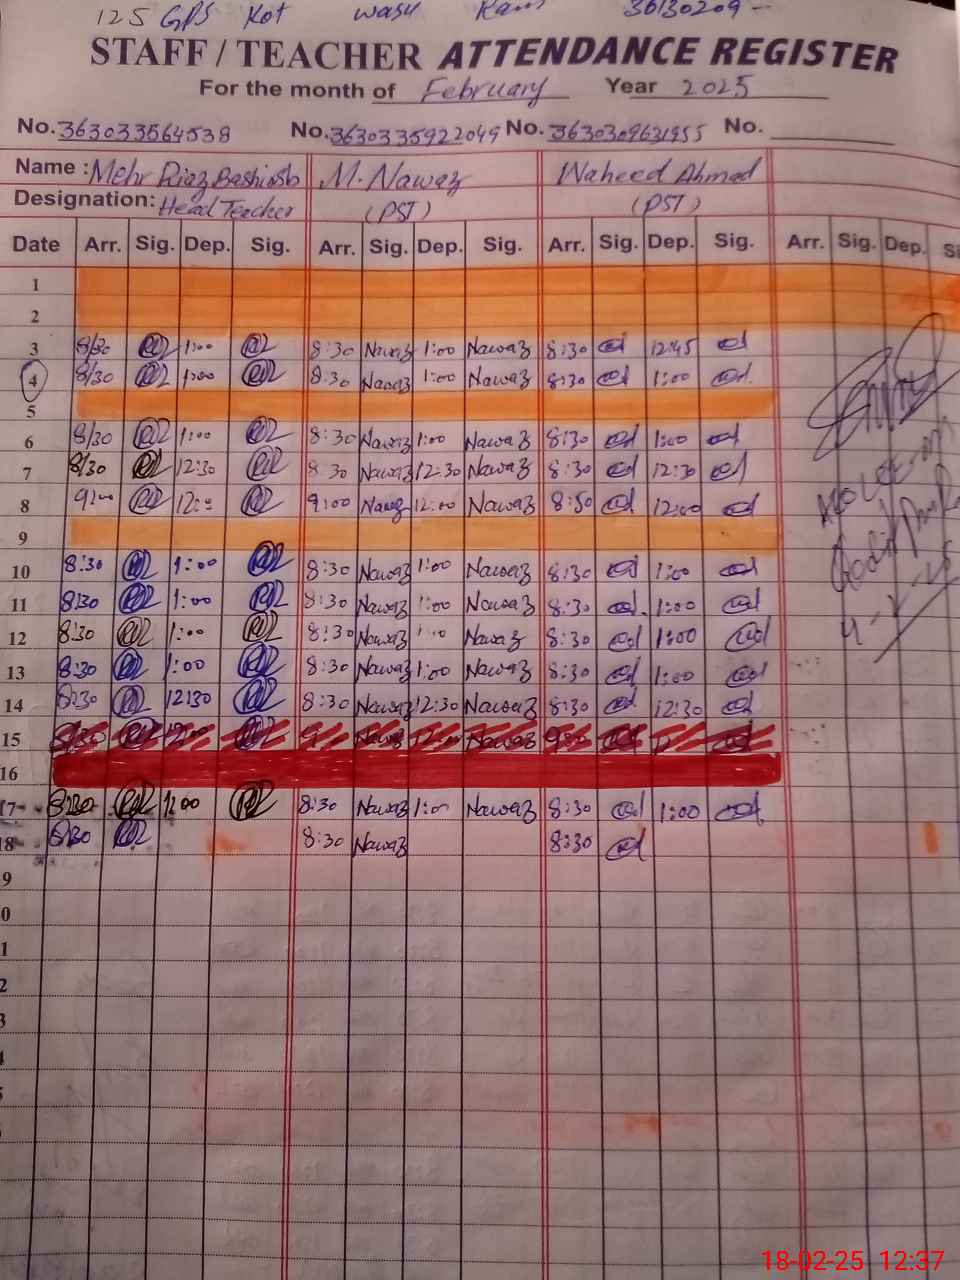 125 GPS Kot wasu Ram 36130209--
STAFF / TEACHER ATTENDANCE REGISTER
For the month of February Year 2025
No. 363033564538 No. 3630335922049 No. 3630309631955 No.
Name : Mehr Riaz Bashir M. Nawaz Waheed Ahmad
Designation: Head Teacher (PST) (PST)
Date Arr. Sig. Dep. Sig. Arr. Sig. Dep. Sig. Arr. Sig. Dep. Sig. Arr. Sig. Dep.
1
2
3 8/30 1:00 8:30 Nawaz 1:00 Nawaz 8:30 12:45
4 8/30 1:00 8:30 Nawaz 1:00 Nawaz 8:30 1:00
5
6 8/30 1:00 8:30 Nawaz 1:00 Nawaz 8:30 1:00
7 8/30 12:30 8 30 Nawaz 12:30 Nawaz 8:30 12:30
8 9:00 12:00 9:00 Nawaz 12:00 Nawaz 8:50 12:00
9
10 8:30 1:00 8:30 Nawaz 1:00 Nawaz 8:30 1:00
11 8:30 1:00 8:30 Nawaz 1:00 Nawaz 8:30 1:00
12 8:30 1:00 8:30 Nawaz 1:00 Nawaz 8:30 1:00
13 8:30 1:00 8:30 Nawaz 1:00 Nawaz 8:30 1:00
14 8:30 12:30 8:30 Nawaz 12:30 Nawaz 8:30 12:30
15 8/30 Nawaz Nawaz
16
17 8:30 1:00 8:30 Nawaz 1:00 Nawaz 8:30 1:00
18 8:30 8:30 Nawaz 8:30
9
0
1
2
3
18-02-25 12:37